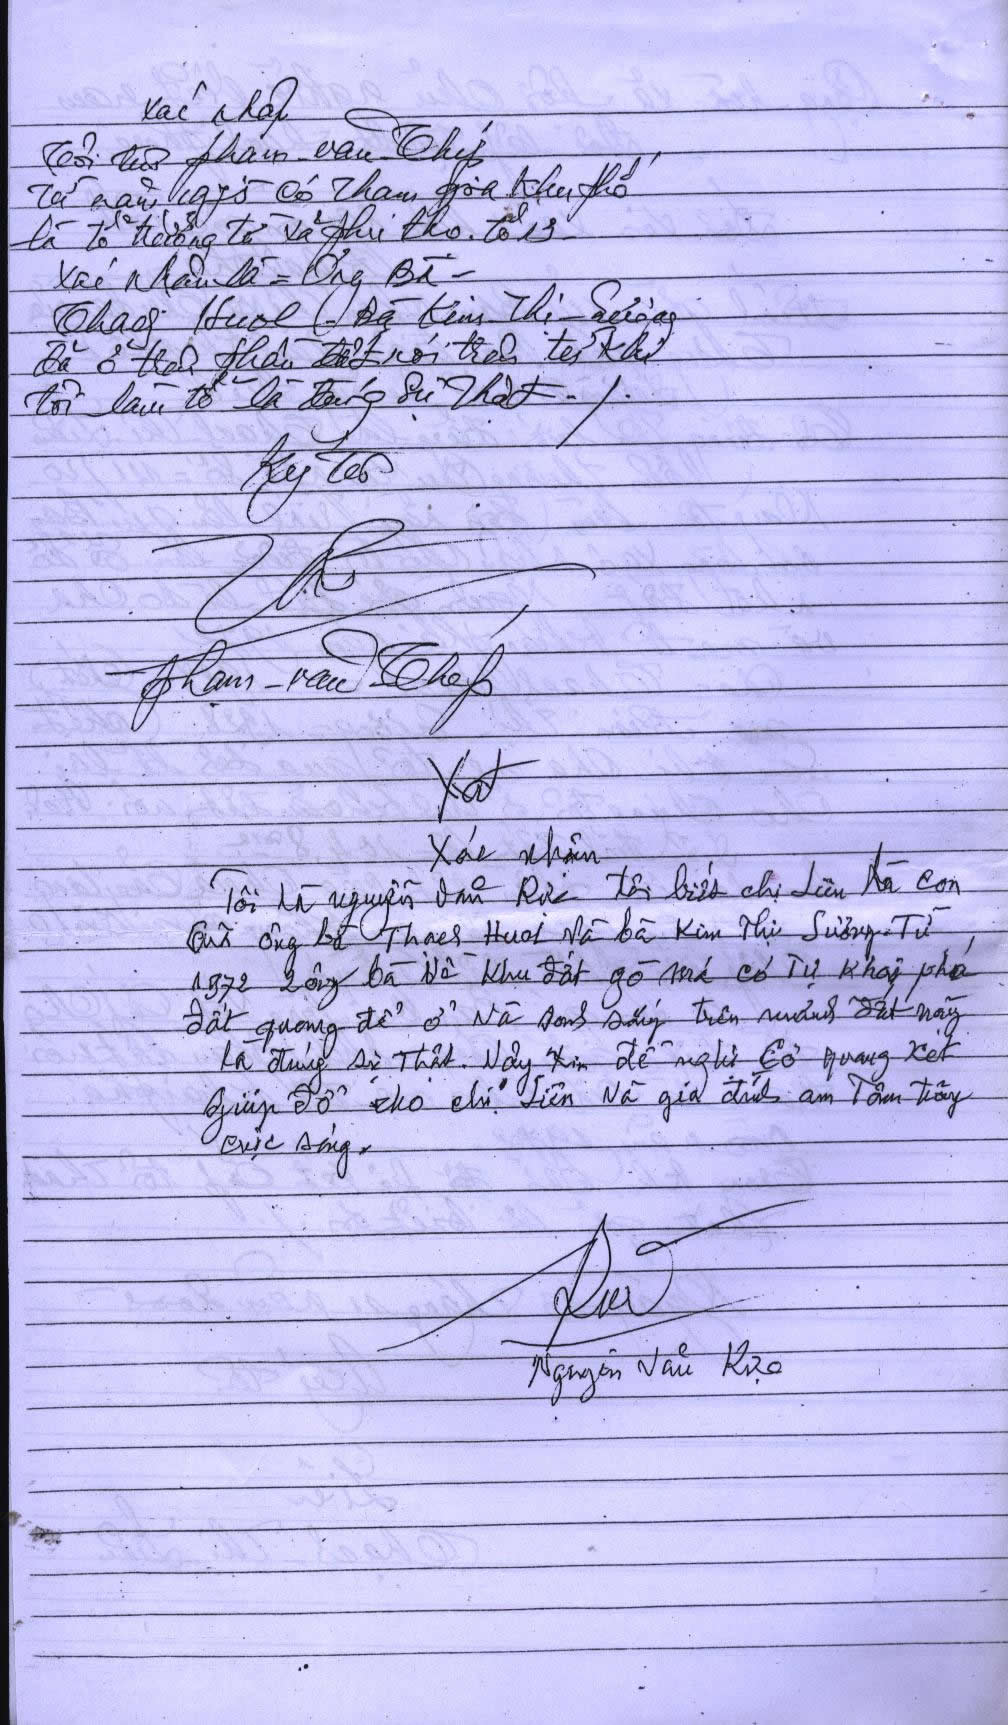 Xác nhận
Tôi tên Phạm Văn Thép
Từ năm 1975 có tham gia khu phố
là tổ trưởng tổ và phụ tho. tổ 13
Xác nhận là = Ông Bà -
Thạch Huol (Bà Kim Thị Sường
Đã ở trên phần đất nói trên từ khi
tôi làm tổ là đúng sự thật ./.
Ký Tên
Phạm Văn Thép
Xác nhận
Tôi là Nguyễn Văn Rực tôi biết chị Liên là con
của ông bà Thạch Huol và bà Kim Thị Sường. Từ
1972 2 ông bà về khu đất gò mã có tự khai phá
đất quang để ở và sinh sống trên mảnh đất này
là đúng sự thật. Nay xin đề nghị cơ quang xét
giúp đỡ cho chị Liên và gia đình an tâm trong
cuộc sống.
Nguyễn Văn Rực